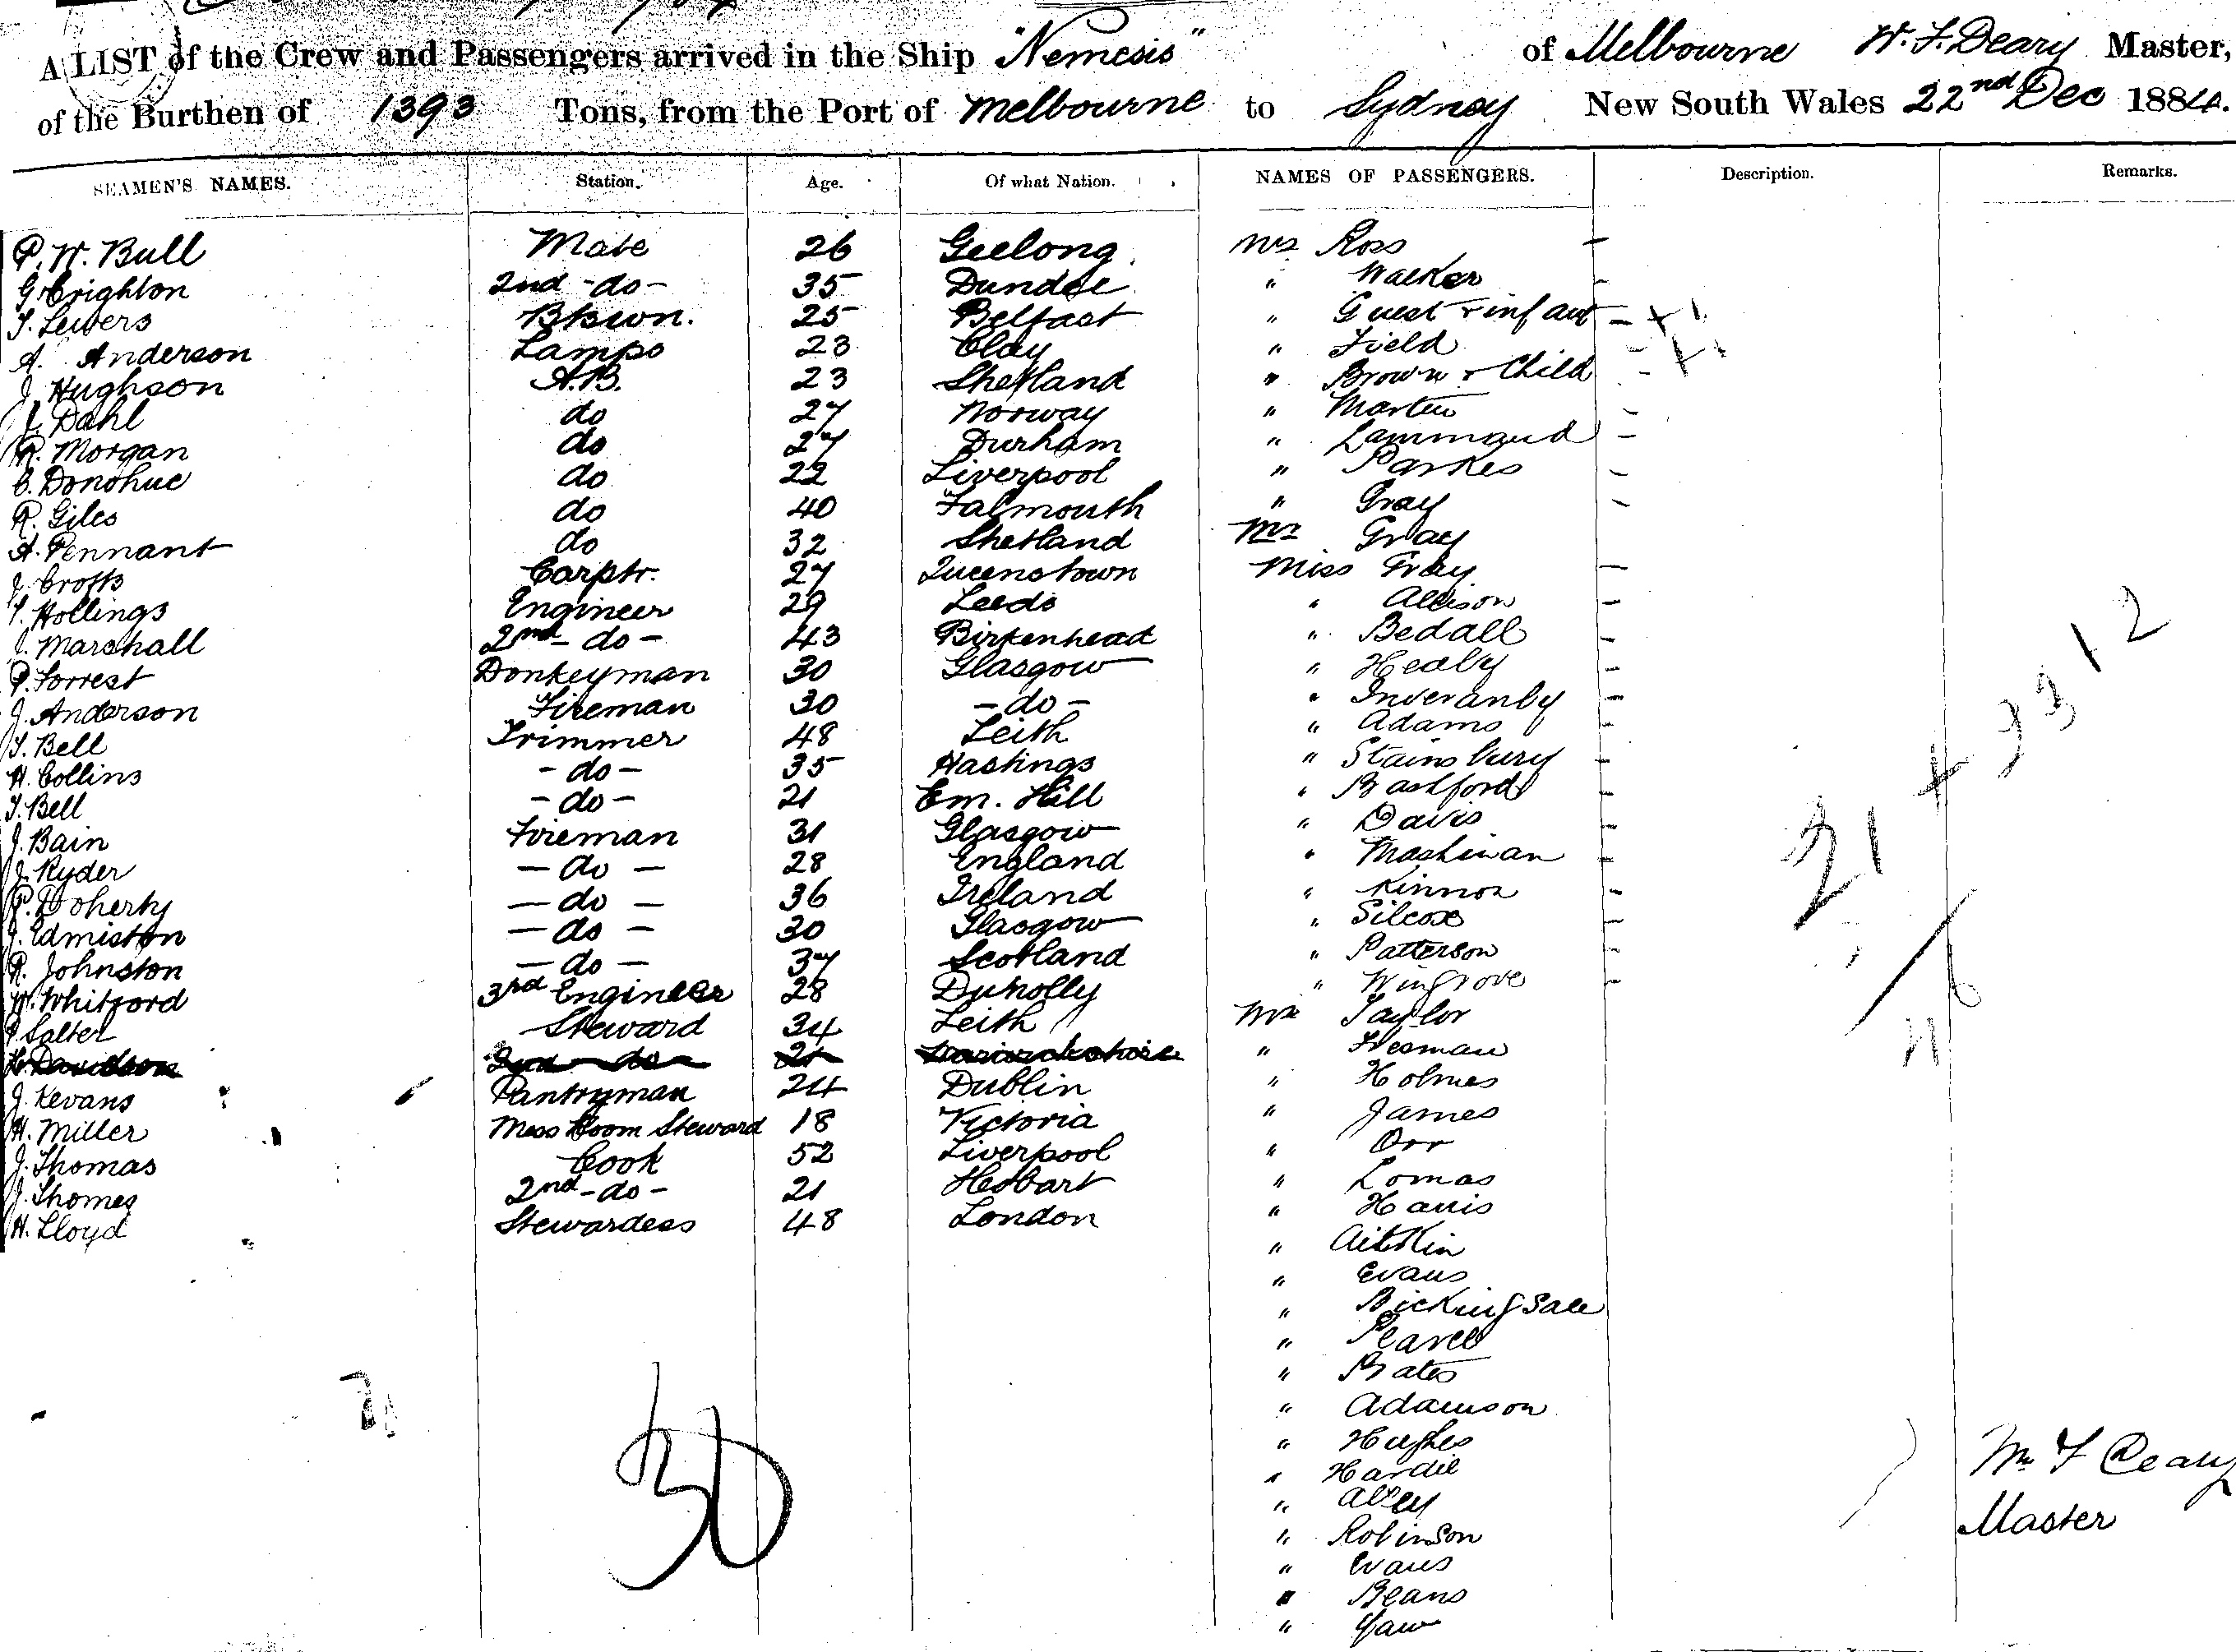 A LIST of the Crew and Passengers arrived in the Ship "Nemesis" of Melbourne W. F. Deary Master,
of the Burthen of 1393 Tons, from the Port of Melbourne to Sydney New South Wales 22nd Dec 1884.
SEAMEN'S NAMES. Station. Age. Of what Nation. NAMES OF PASSENGERS. Description. Remarks.
P. W. Bull Mate 26 Geelong Mrs Ross
G Crighton 2nd - do - 35 Dundee " Walker
T. Lewers Btswn. 25 Belfast " Guest + infant
A. Anderson Lamps 23 Clay " Field
J. Hughson A.B. 23 Shetland " Brown + Child
J. Dahl do 27 Norway " Martin
R. Morgan do 27 Durham " Lammand
C. Donohue do 22 Liverpool " Parkes
R. Giles do 40 Falmouth " Gray
A. Pennant do 32 Shetland Mr Gray
J. Crofts Carptr. 27 Queenstown Miss Gray
T. Hollings Engineer 29 Leeds " Allison
J. Marshall 2nd - do - 43 Birkenhead " Bedall
P. Forrest Donkeyman 30 Glasgow " Healy
J. Anderson Fireman 30 - do - " Inveranby
T. Bell Trimmer 48 Leith " Adams
H. Collins - do - 35 Hastings " Stainsbury
T. Bell - do - 21 Em. Hill " Bashford
J. Bain Fireman 31 Glasgow " Davis
J. Ryder - do - 28 England " Mashiwan
P. Doherty - do - 36 Ireland " Kinnon
J. Edmiston - do - 30 Glasgow " Silcox
R. Johnston - do - 37 Scotland " Patterson
W. Whitford 3rd Engineer 28 Dunolly " Wingrove
P Salter Steward 34 Leith Mr Taylor
H Davidson 2nd - do - 21 " Freeman
J. Kevans Pantryman 24 Dublin " Holmes
H. Miller Mess Room Steward 18 Victoria " James
J. Thomas Cook 52 Liverpool " Orr
J. Thomes 2nd - do - 21 Hobart " Lomas
H. Lloyd Stewardess 48 London " Harris
" Aitkin
" Evans
" Bickingsale
" Pearce
" Bates
" Adamson
" Hughes
" Hardie
" Alley
" Robinson
" Evans
" Beans
" Yaw
30
21
Wm F Deary
Master